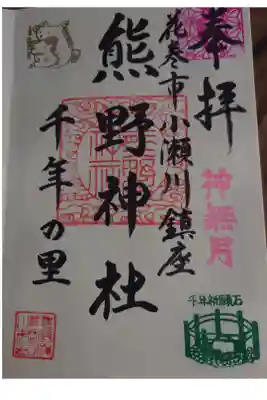 奉拝
神無月
花巻市小瀬川鎮座
熊野神社
千年の里
千年祈願石